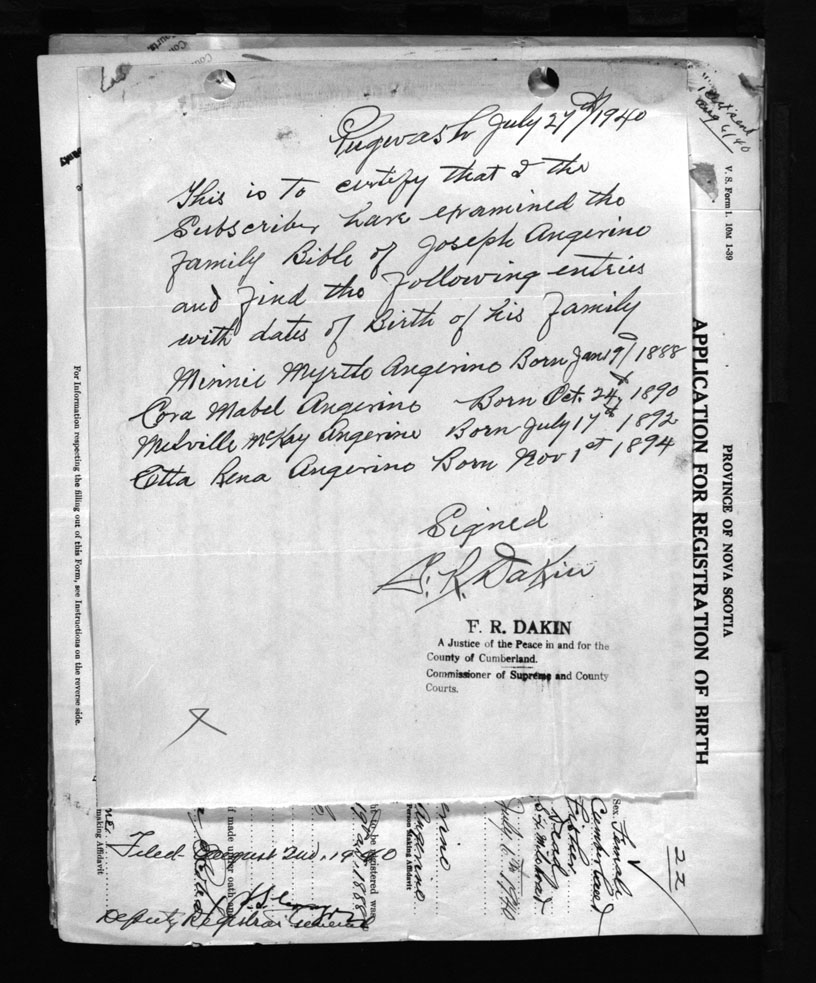 Pugwash July 27th 1940
This is to certify that I the
Subscriber have examined the
family Bible of Joseph Angevine
and find the following entries
with dates of Birth of his family
Minnie Myrtle Angevine Born Jan 19/1888
Cora Mabel Angevine Born Oct. 24th 1890
Melville McKay Angevine Born July 17th 1892
Etta Rena Angevine Born Nov 1st 1894
Signed
F. R. Dakin
F. R. DAKIN
A Justice of the Peace in and for the
County of Cumberland.
Commissioner of Supreme and County
Courts.
Aug 6/40
V. S. Form 1. 10M 1-39
PROVINCE OF NOVA SCOTIA
APPLICATION FOR REGISTRATION OF BIRTH
For Information respecting the filling out of this Form, see Instructions on the reverse side.
22
Sex. Female
Cumberland
July 1940
Angevine
Person Making Affidavit
to be registered was
19 1888
if made under oath and
making Affidavit
Filed August 2nd, 1940
Deputy Registrar General